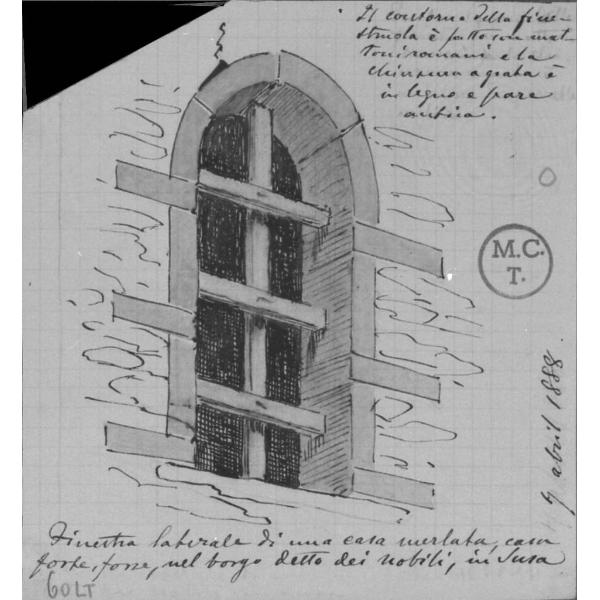 Il contorno della fine-
struola è fatto con mat-
toni romani e la
chiusura a grata è
in legno e pare
antica.
M.C.
T.
9 abril 1888.
Finestra laterale di una casa merlata, casa
forte, forse, nel borgo detto dei nobili, in Susa
60LT